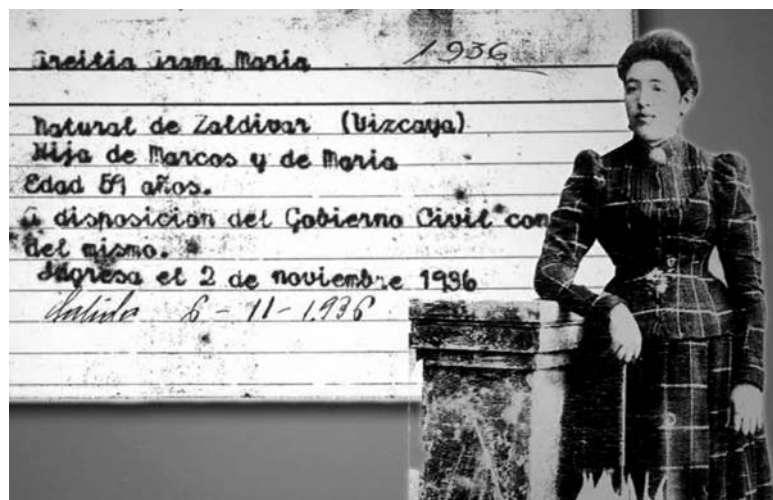 Areitia Arana Maria 1936
Natural de Zaldivar (Vizcaya)
Hija de Marcos y de Maria
Edad 59 años.
A disposicion del Gobierno Civil con
del mismo.
Ingresa el 2 de noviembre 1936
Salida 6-11-1936